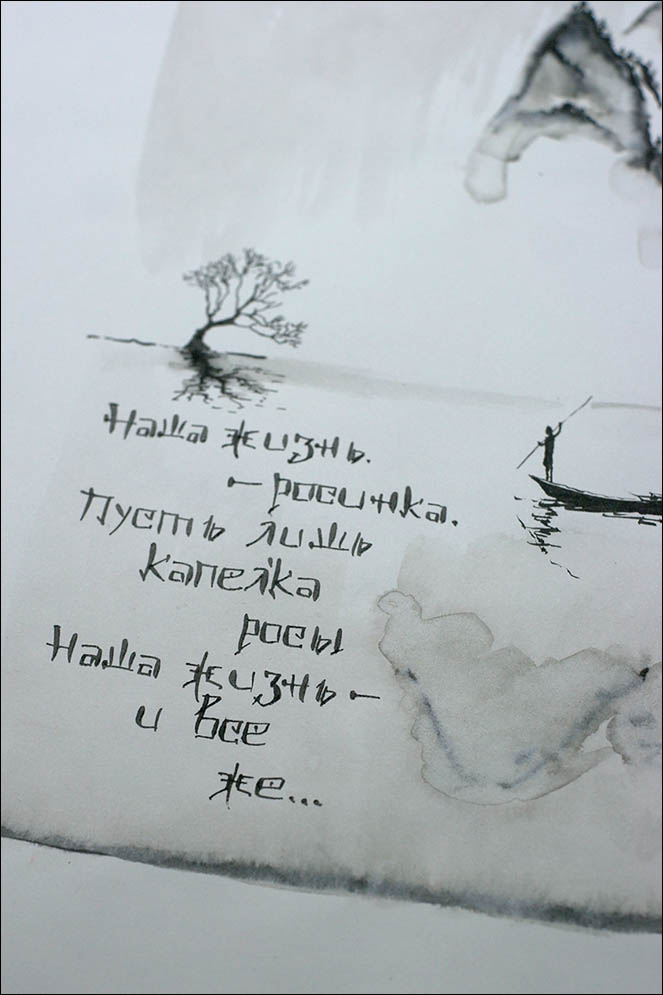 Наша жизнь.
– росинка.
Пусть лишь
капелка
росы
Наша жизнь –
и все
же...